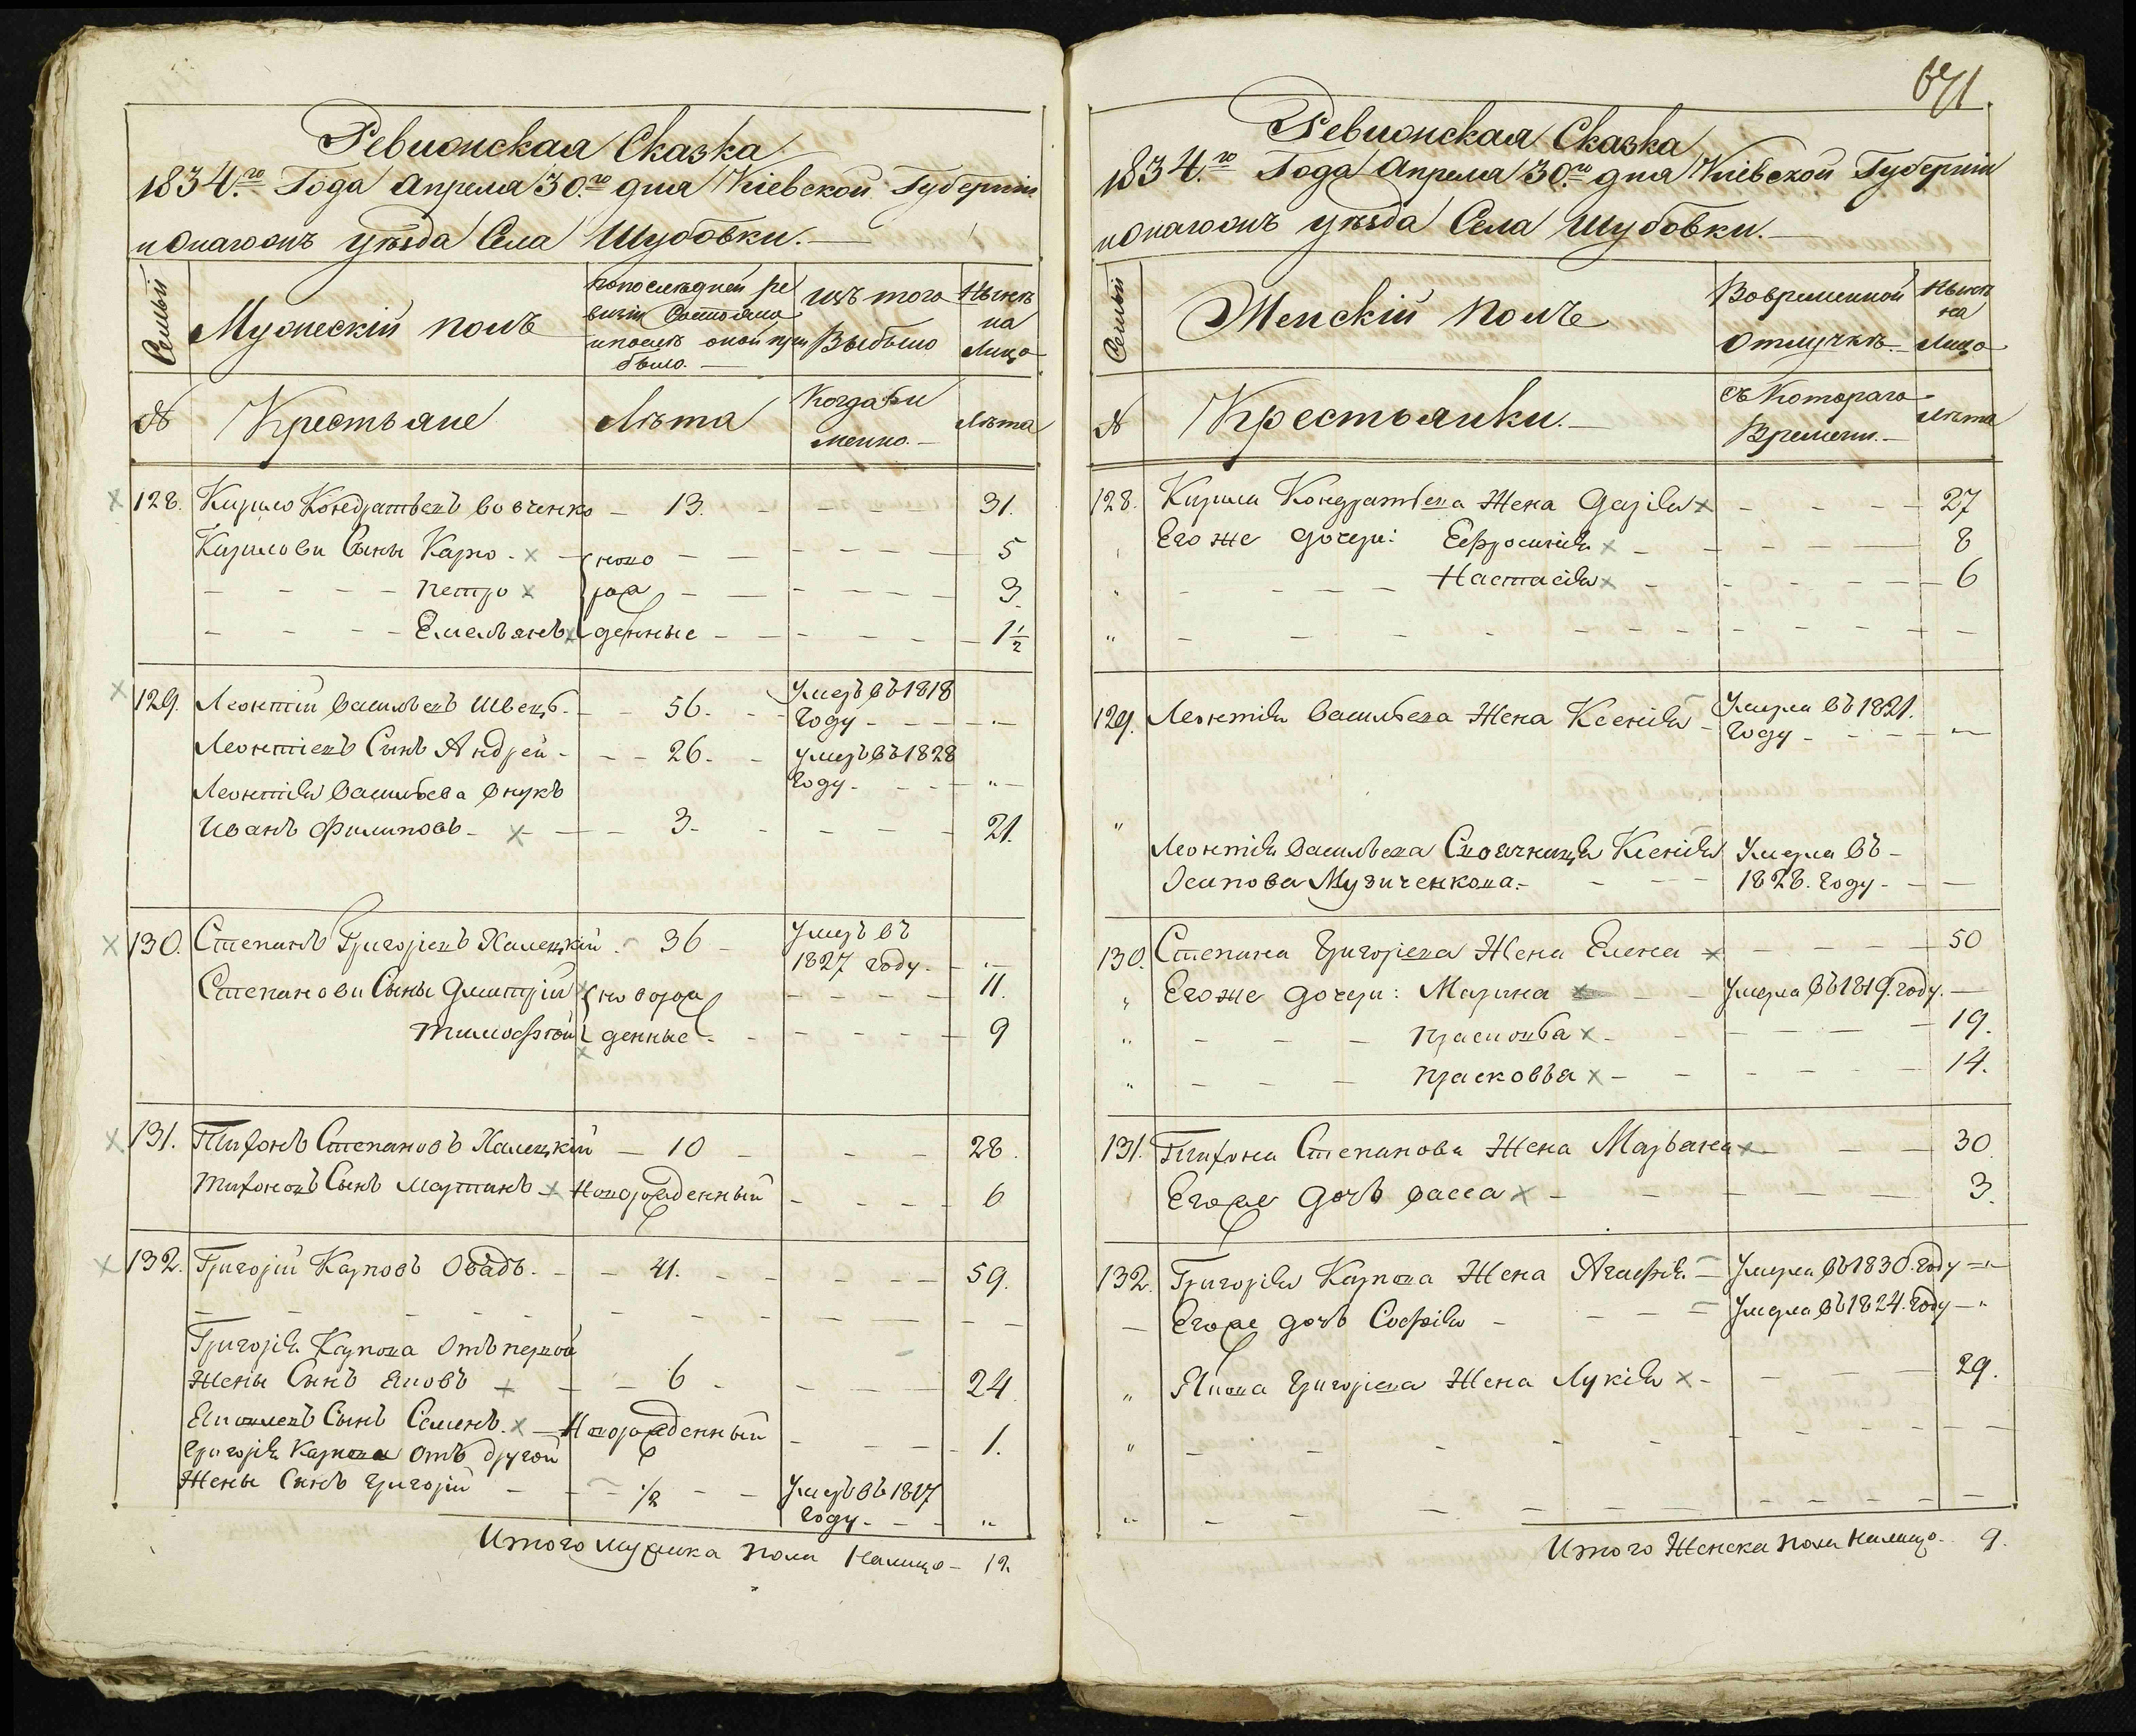 Ревизская Сказка
1834.го Года Апреля 30.го дня Кіевской Губерніи
уѣзда Села Шубовки.
Семьи
Мужескій полъ
По последней ре
визіи Состояло
и после оной при
было.
Изъ того
Выбыло
Нынѣ
на
Лицо
№
Крестьяне
Лѣта
Когда и
менно.
Лѣта
128. Кирило Кондратьевъ Вовченко 13. 31.
Кирилови Сыны Карпо ново 5
Петро рож 3.
Емельянъ денные 1 1/2
129. Леонтій Васильевъ Швецъ 56. Умеръ въ 1818
Году
Леонтіевъ Сынъ Андрей 26. Умеръ въ 1828
Году
Леонтія Васильева внукъ
Иванъ Филиповъ 3 21.
130. Степанъ Григоріевъ Халецкій 36 Умеръ въ
1827 году
Степанови Сыны Дмитрій новорож 11.
Тимофей денные 9
131. Тихонъ Степановъ Халецкій 10 28.
Тихоновъ Сынъ Мартинъ Новорожденный 6
132. Григорій Карповъ Овадъ. 41. 59.
Григорія Карпова Отъ первой
Жены Сынъ Яковъ 6 24
Сынъ Семенъ. Новорожденный 1.
Григорія Карпова Отъ другой
Жены Сынъ Григорій 1/2 Умеръ въ 1817
Году
Итого мужска пола Налицо 12.
671
Ревизская Сказка
1834.го Года Апреля 30.го дня Кіевской Губерніи
уѣзда Села Шубовки.
Семьи
Женскій полъ
Во временной
Отлучкѣ.
Нынѣ
на
Лицо
№
Крестьянки.
Съ Котораго
Времени.
Лѣта
128. Кирила Кондратьева Жена Дарія 27
Его же дочери: Ефросинія 8
Настасія 6
129. Леонтія Васильева Жена Ксенія Умерла въ 1821.
Году
Леонтія Васильева Своячница Ксенія Умерла въ
Осипова Музиченкова. 1828. Году
130. Степана Григоріева Жена Елена 50
Его же дочери: Марина Умерла въ 1819. году.
19.
Прасковья 14.
131. Тихона Степанова Жена Марьана 30.
Его же дочь Васса 3.
132. Григорія Карпова Жена Агафія Умерла въ 1830. году
Его же дочь Софія Умерла въ 1824. году
Якова Григоріева Жена Лукія 29.
Итого Женска пола Налицо. 9.